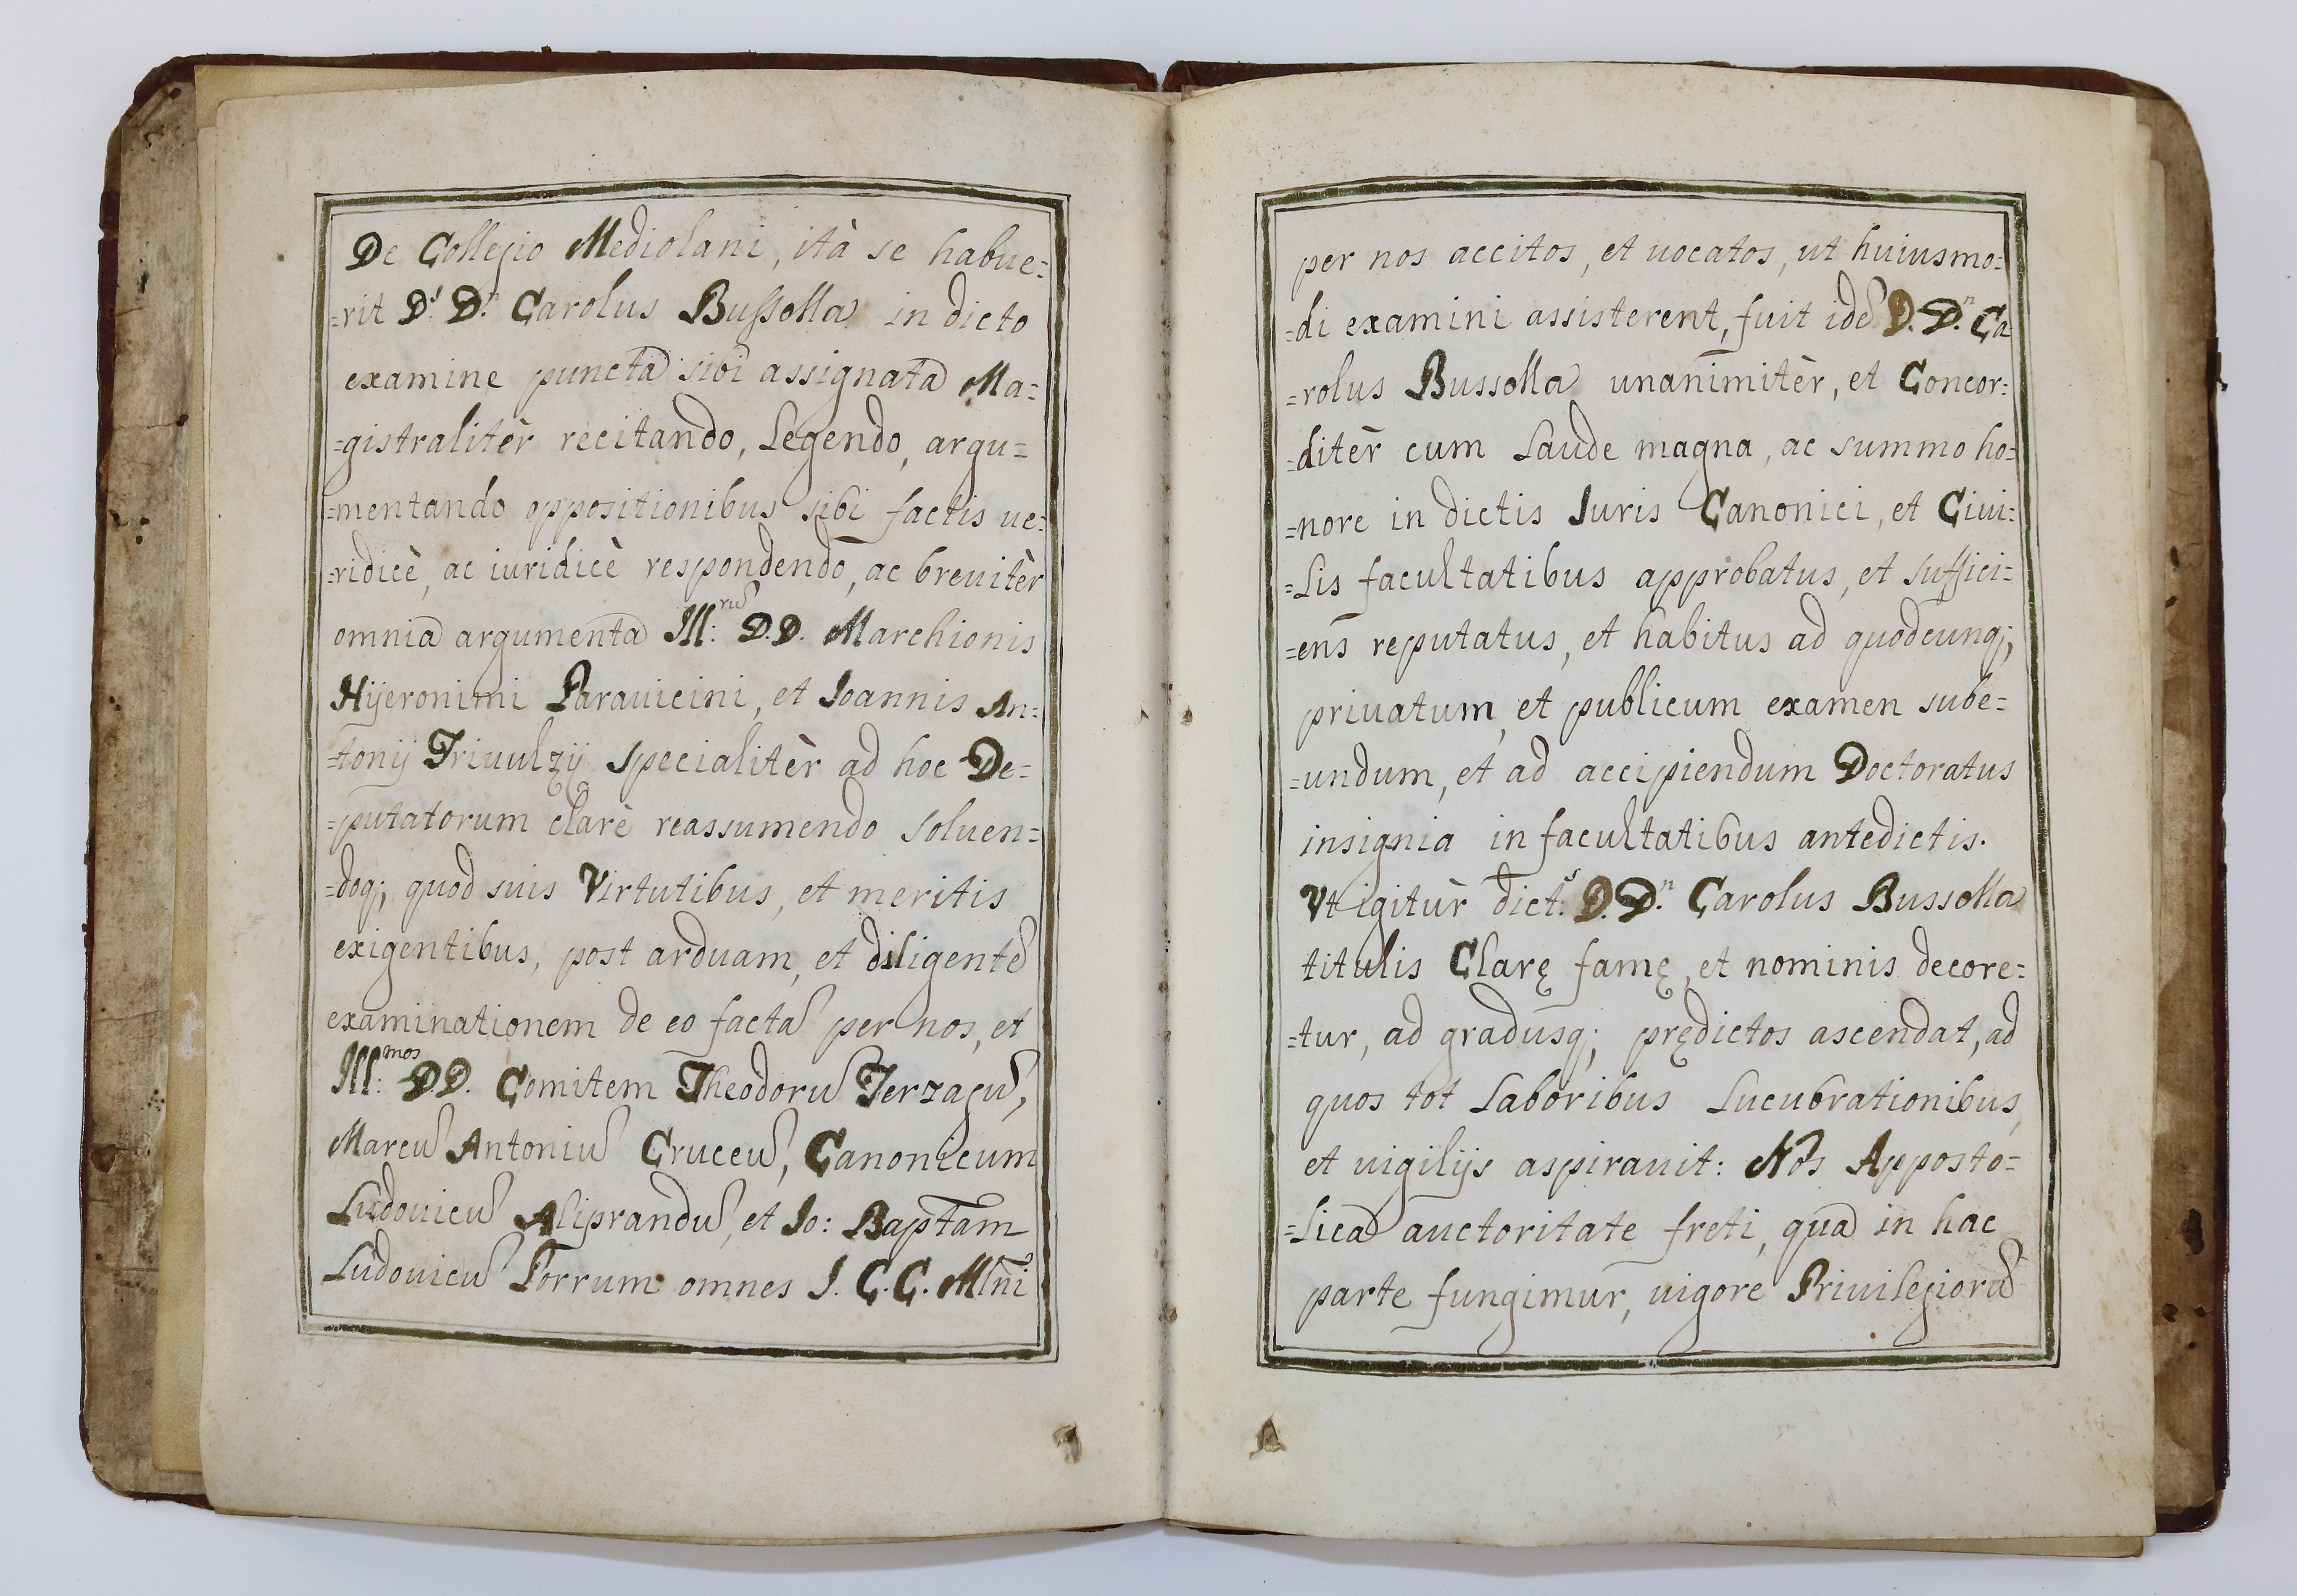 De Collegio Mediolani, ità se habue=
=rit D.s D.n Carolus Bussolla in dicto
examine puncta sibi assignata Ma=
=gistralitèr recitando, Legendo, argu=
=mentando oppositionibus sibi factis ue=
=ridicè, ac iuridicè respondendo, ac breuitèr
omnia argumenta Ill:rũ D.D. Marchionis
Hijeronimi Parauicini, et Ioannis An=
=tonij Triuulzij specialitèr ad hoc De=
=putatorum clarè reassumendo soluen=
=doq; quod suis Virtutibus, et meritis
exigentibus, post arduam, et diligentẽ
examinationem de eo factã per nos, et
Ill:mos DD. Comitem Theodorũ Terzagũ,
Marcũ Antoniũ Cruceũ, Canonicum
Ludouicũ Aliprandũ, et Io: Baptam
Ludouicũ Porrum omnes I. C. C. Mlñi
per nos accitos, et uocatos, ut huiusmo=
=di examini assisterent, fuit idẽ D. D.n Ca
=rolus Bussolla unanimitèr, et Concor=
=ditèr cum Laude magna, ac summo ho=
=nore in dictis Iuris Canonici, et Ciui=
=Lis facultatibus approbatus, et suffici=
=ens reputatus, et habitus ad quodcunq;
priuatum, et publicum examen sube=
=undum, et ad accipiendum Doctoratus
insignia in facultatibus antedictis.
Vt igitùr dict:s D. D.n Carolus Bussolla
titulis Clarę famę, et nominis decore=
=tur, ad gradusq; prędictos ascendat, ad
quos tot Laboribus Lucubrationibus,
et uigilijs aspirauit: Nos Apposto=
=lica auctoritate freti, qua in hac
parte fungimur, uigore Priuilegiorũ